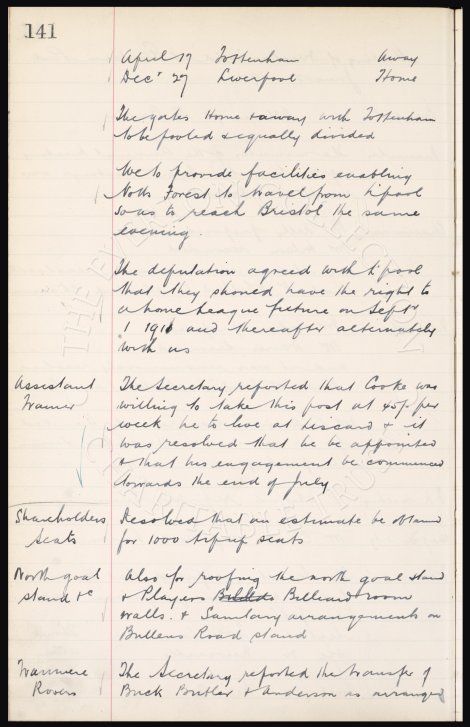 141
April 17 Tottenham Away
Decr 27 Liverpool Home
The gates Home & away with Tottenham
to be pooled & equally divided
We to provide facilities enabling
Notts Forest to travel from L'pool
so as to reach Bristol the same
evening.
The deputation agreed with L'pool
that they should have the right to
a home League fixture on Septr
1 1910 and thereafter alternately
with us
Assistant
Trainer
The Secretary reported that Cooke was
willing to take this post at 45/- per
week he to live at Liscard & it
was resolved that he be appointed
& that his engagement be commenced
towards the end of July
Shareholders
Seats
Resolved that an estimate be obtained
for 1000 tip up seats
North goal
stand &c
Also for roofing the north goal stand
& Players Billiard room
walls. & Sanitary arrangements on
Bullens Road stand
Tranmere
Rovers
The Secretary reported the transfer of
Buck Pontler & Anderson as arranged